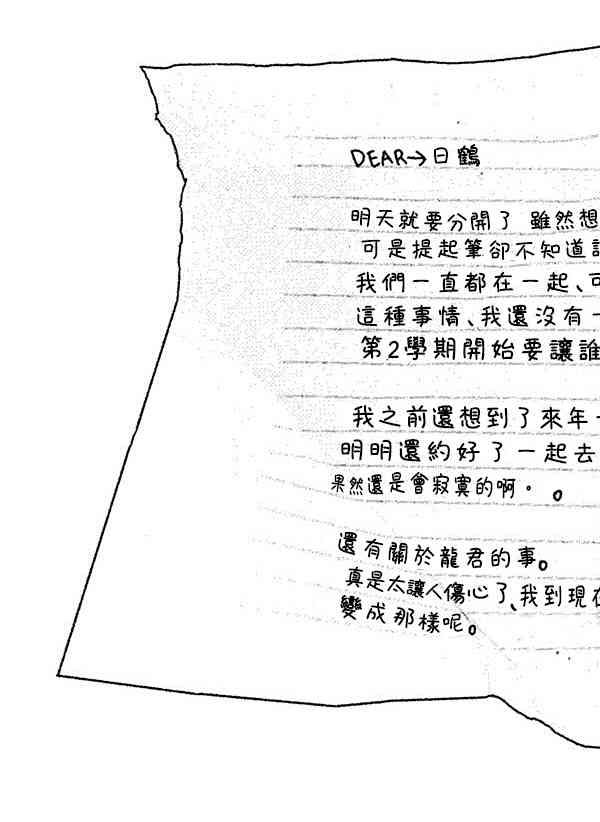 DEAR→日鶴
明天就要分開了 雖然想
可是提起筆卻不知道
我們一直都在一起、可
這種事情、我還沒有一
第2學期開始要讓誰
我之前還想到了來年
明明還約好了一起去
果然還是會寂寞的啊。。
還有關於龍君的事。
真是太讓人傷心了、我到現在
變成那樣呢。